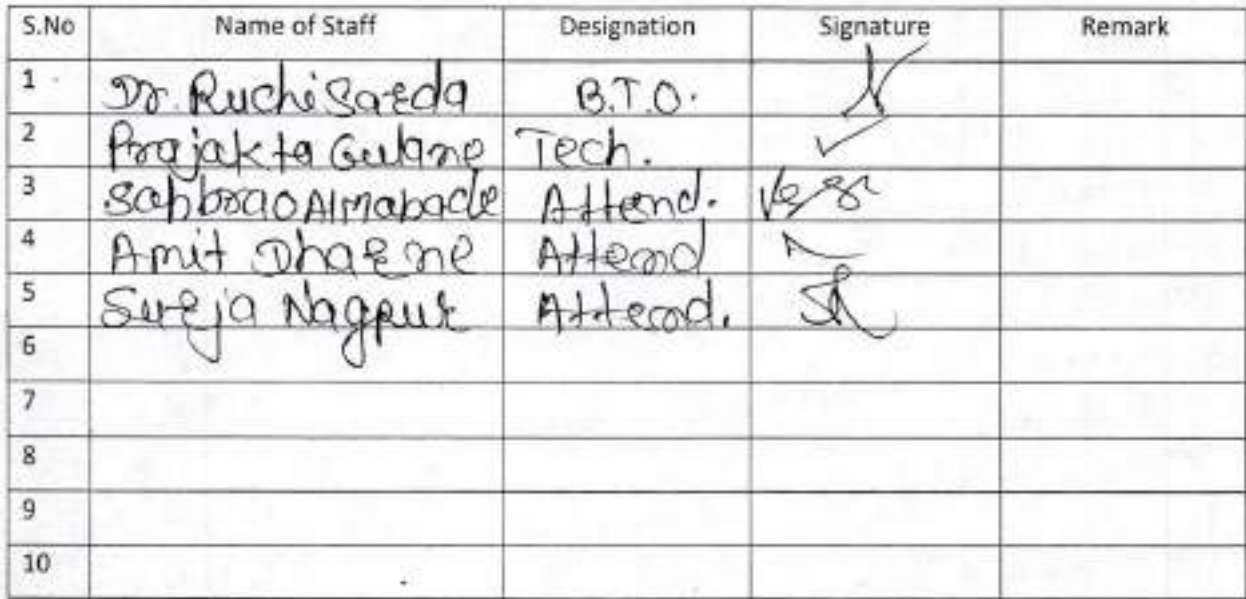 S.No Name of Staff Designation Signature Remark
1 Dr. Ruchi Sarda B.T.O.
2 Prajakta Gulane Tech.
3 Sahbrao Almabade Attend.
4 Amit Dharne Attend
5 Nagpure Attend.
6
7
8
9
10